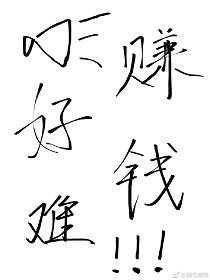 好难
赚钱!!!